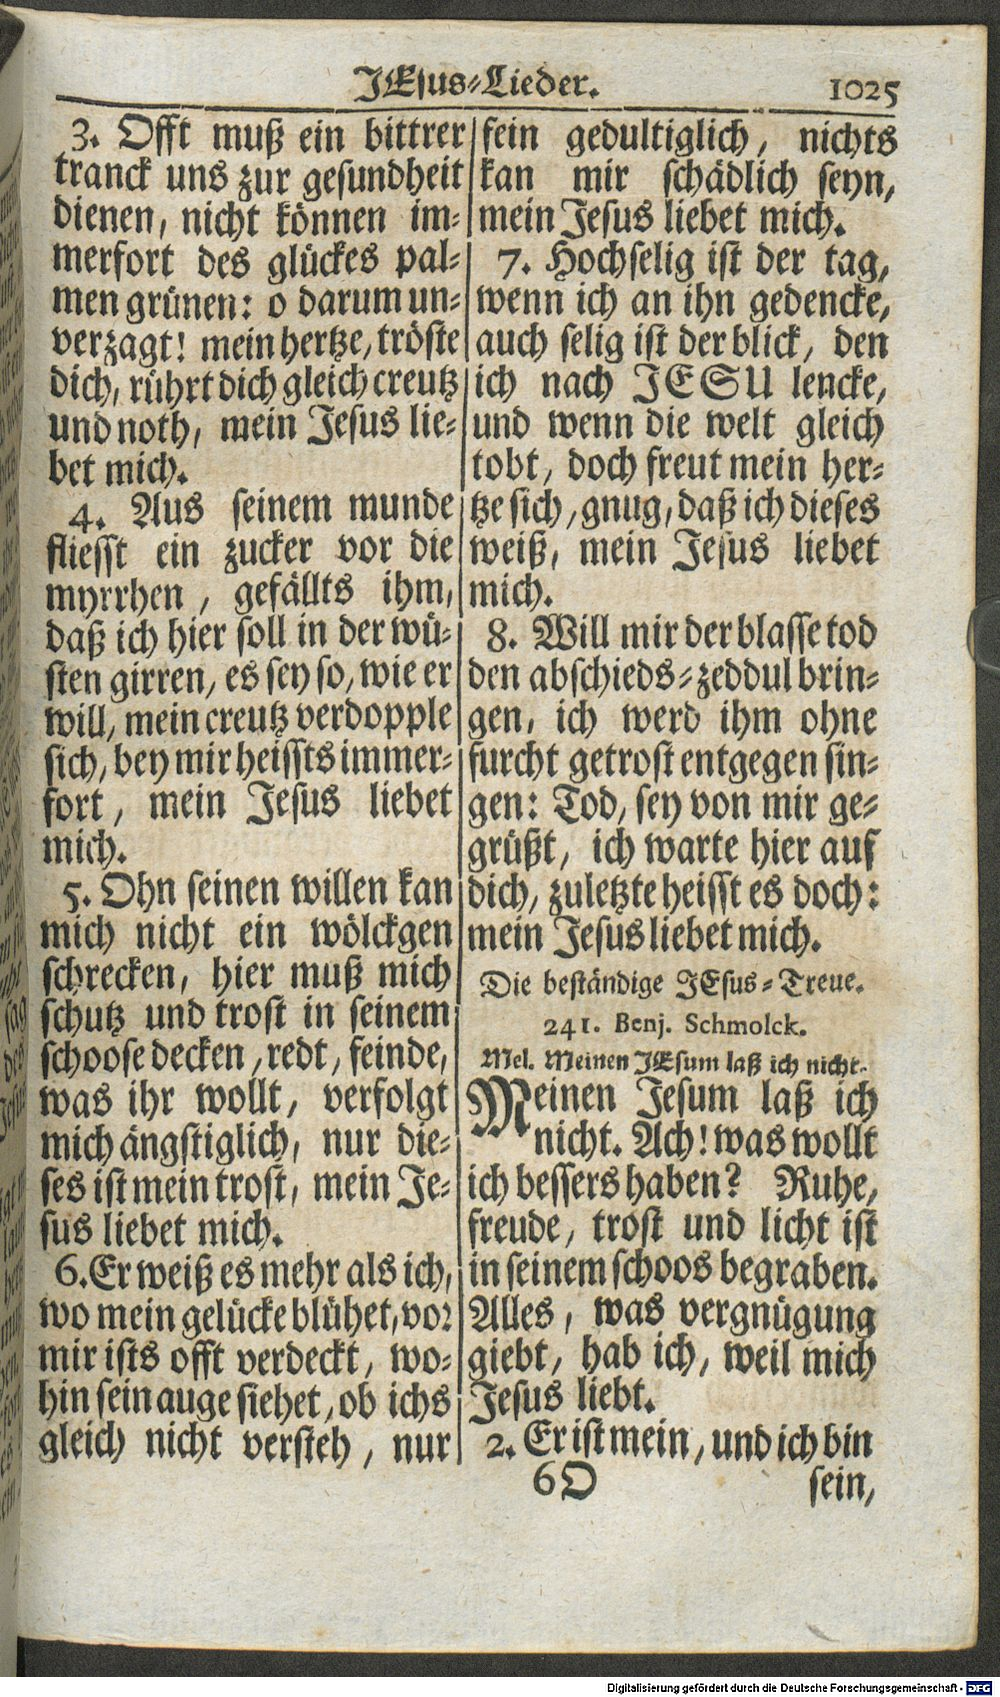 JEsus-Lieder. 1025
3. Offt muß ein bittrer
tranck uns zur gesundheit
dienen, nicht können im-
merfort des glückes pal-
men grünen: o darum un-
verzagt! mein hertze, tröste
dich, rührt dich gleich creutz
und noth, mein Jesus lie-
bet mich.
4. Aus seinem munde
fliesst ein zucker vor die
myrrhen, gefällts ihm,
daß ich hier soll in der wü-
sten girren, es sey so, wie er
will, mein creutz verdopple
sich, bey mir heissts immer-
fort, mein Jesus liebet
mich.
5. Ohn seinen willen kan
mich nicht ein wölckgen
schrecken, hier muß mich
schutz und trost in seinem
schoose decken, redt, feinde,
was ihr wollt, verfolgt
mich ängstiglich, nur die-
ses ist mein trost, mein Je-
sus liebet mich.
6. Er weiß es mehr als ich,
wo mein gelücke blühet, vor
mir ists offt verdeckt, wo-
hin sein auge siehet, ob ichs
gleich nicht versteh, nur
fein gedultiglich, nichts
kan mir schädlich seyn,
mein Jesus liebet mich.
7. Hochselig ist der tag,
wenn ich an ihn gedencke,
auch selig ist der blick, den
ich nach JESU lencke,
und wenn die welt gleich
tobt, doch freut mein her-
tze sich, gnug, daß ich dieses
weiß, mein Jesus liebet
mich.
8. Will mir der blasse tod
den abschieds-zeddul brin-
gen, ich werd ihm ohne
furcht getrost entgegen sin-
gen: Tod, sey von mir ge-
grüßt, ich warte hier auf
dich, zuletzte heisst es doch:
mein Jesus liebet mich.
Die beständige JEsus-Treue.
241. Benj. Schmolck.
Mel. Meinen JEsum laß ich nicht.
Meinen Jesum laß ich
nicht. Ach! was wollt
ich bessers haben? Ruhe,
freude, trost und licht ist
in seinem schoos begraben.
Alles, was vergnügung
giebt, hab ich, weil mich
Jesus liebt.
2. Er ist mein, und ich bin
6O sein,
Digitalisierung gefördert durch die Deutsche Forschungsgemeinschaft - DFG